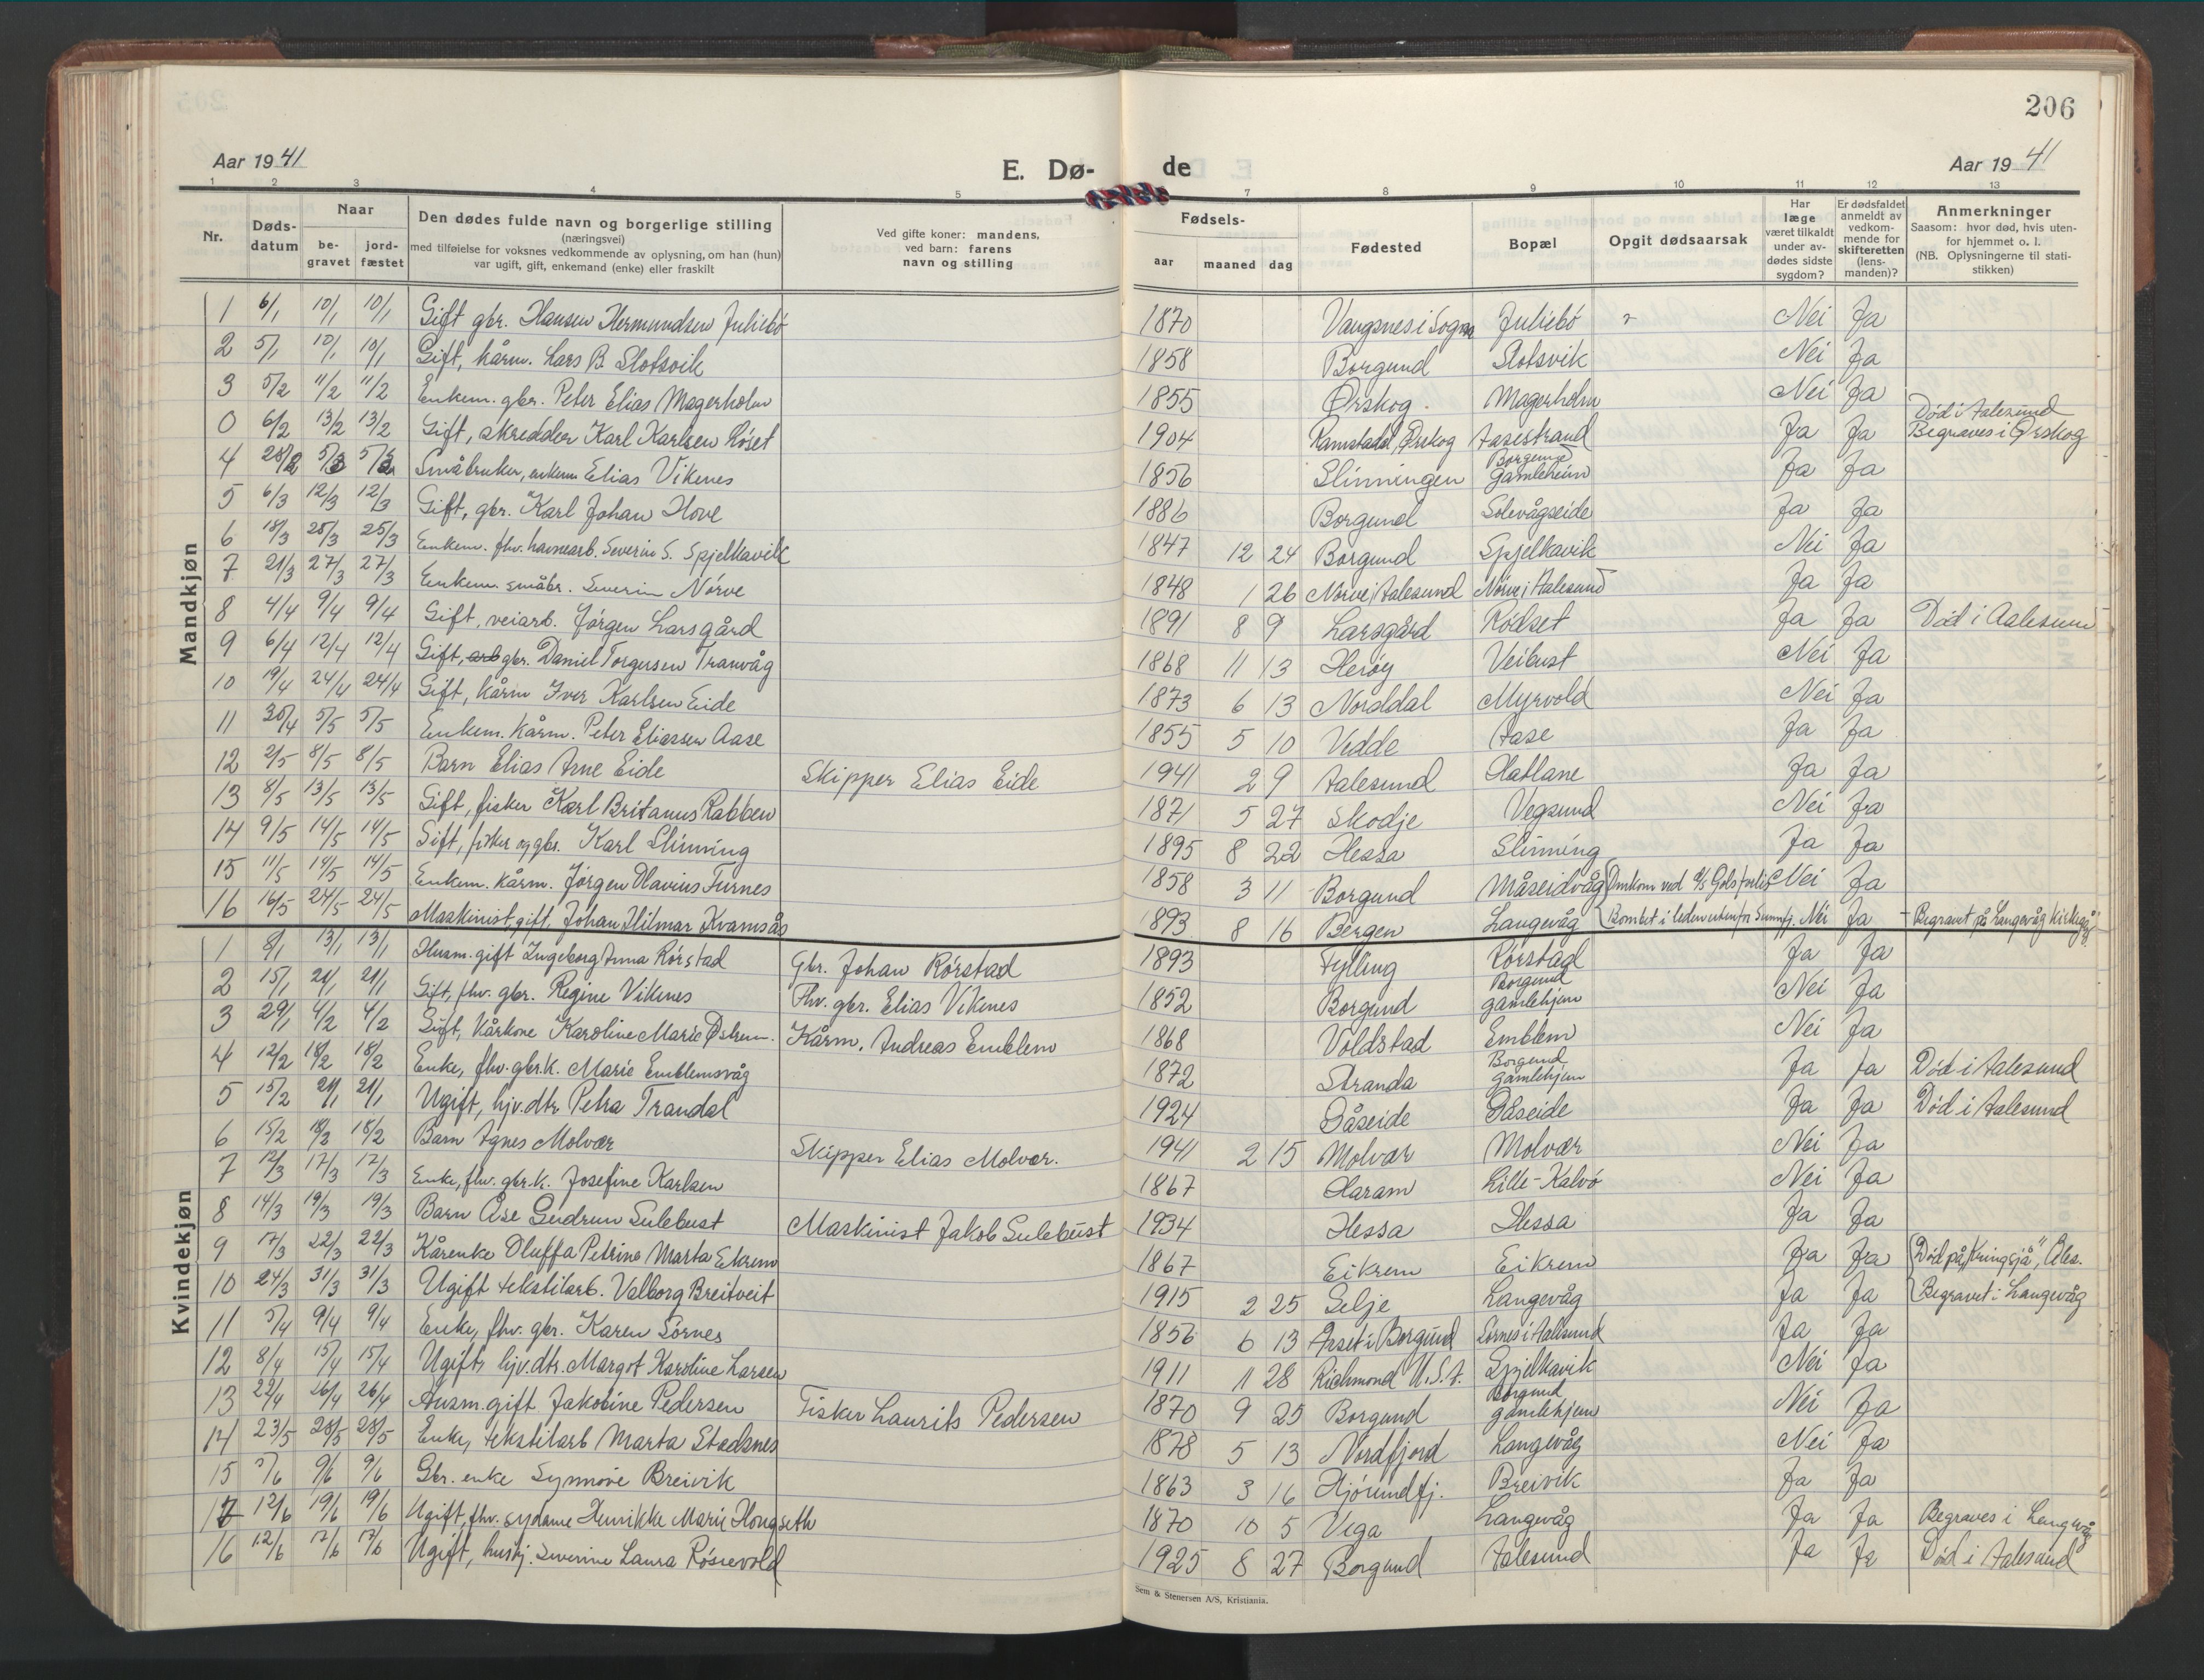 206
Aar 1941
E. Dø-
de
Aar 1941
1 2 3 4 5 7 8 9 10 11 12 13
Nr.
Døds-
datum
Naar
be-
gravet
jord-
fæstet
Den dødes fulde navn og borgerlige stilling
(næringsvei)
med tilføielse for voksnes vedkommende av oplysning, om han (hun)
var ugift, gift, enkemand (enke) eller fraskilt
Ved gifte koner: mandens,
ved barn: farens
navn og stilling
Fødsels-
aar maaned dag
Fødested
Bopæl
Opgit dødsaarsak
Har
læge
været tilkaldt
under av-
dødes sidste
sygdom?
Er dødsfaldet
anmeldt av
vedkom-
mende for
skifteretten
(lens-
manden)?
Anmerkninger
Saasom: hvor død, hvis uten-
for hjemmet o. l.
(NB. Oplysningerne til stati-
stikken)
Mandkjøn
1 6/1 10/1 10/1 Gift gbr. Hansen Hermundsen Juliebö 1870 Vangsnes i Sogn Juliebö Nei Ja
2 5/1 10/1 10/1 Gift, kårm. Lars B. Slotsvik 1858 Borgund Slotsvik Nei Ja
3 5/2 11/2 11/2 Enkem. gbr. Peter Elias Magerholm 1855 Ørskog Magerholm Nei Ja
0 6/2 13/2 13/2 Gift, skredder Karl Karlsen Röset 1904 Ramstadal, Ørskog Aasestrand Ja Ja Död i Aalesund Begraves i Ørskog
4 28/2 5/3 5/3 Småbruker, enkem Elias Vikenes 1856 Slinningen Borgund Gamleheim Ja Ja
5 6/3 12/3 12/3 Gift, gbr. Karl Johan Hove 1886 Borgund Solevågseide Ja Ja
6 18/3 25/3 25/3 Enkem. fhv. havnearb. Severin S. Spjelkavik 1847 12 24 Borgund Spjelkavik Nei Ja
7 21/3 27/3 27/3 Enkem. småbr. Severin Nörve 1848 1 26 Nörve i Aalesund Nörve i Aalesund Ja Ja
8 4/4 9/4 9/4 Gift, veiarb. Jörgen Larsgård 1891 8 9 Larsgård Rödset Ja Ja Död i Aalesund
9 6/4 12/4 12/4 Gift, arb gbr. Daniel Torgersen Tranvåg 1868 11 13 Heröy Veibust Nei Ja
10 19/4 24/4 24/4 Gift, kårm Iver Karlsen Eide 1873 6 13 Norddal Myrvold Nei Ja
11 30/4 5/5 5/5 Enkem. Kårm. Peter Eliassen Aase 1855 5 10 Vedde Aase Ja Ja
12 2/5 8/5 8/5 Barn Elias Arne Eide Skipper Elias Eide 1941 2 9 Aalesund Hatlane Ja Ja
13 8/5 13/5 13/5 Gift, fisker Karl Britanus Rabben 1871 5 27 Skodje Vegsund Nei Ja
14 9/5 14/5 14/5 Gift, fisker og gbr. Karl Slinning 1895 8 22 Hessa Slinning Ja Ja
15 11/5 14/5 14/5 Enkem. kårm. Jörgen Olavius Furnes 1858 3 11 Borgund Måseidvåg Nei Ja
16 16/5 24/5 24/5 Maskinist, gift, Johan Hilmar Kvamsås 1893 8 16 Bergen Langevåg Omkom ved Bombet i leden utenfor Sunnfj. Nei Ja Begravet på Langevåg kirkegård
Kvindekjøn
1 8/1 13/1 13/1 Husm. gift Ingeborg Anna Rörstad Gbr. Johan Rörstad 1893 Fylling Rörstad Ja Ja
2 15/1 21/1 21/1 Gift, fhv. gbr. Regine Vikenes Fhv. gbr. Elias Vikenes 1852 Borgund Borgund gamlehjem Nei Ja
3 29/1 4/2 4/2 Gift, Kårkone Karoline Marie Kårm. Andreas Emblem 1868 Voldstad Emblem Nei Ja
4 12/2 18/2 18/2 Enke, fhv. gbr.k. Marie Emblemsvåg 1872 Stranda Borgund gamlehjem Ja Ja Död i Aalesund
5 15/2 21/1 21/1 Ugift, hjv. dtr. Petra Trandal 1924 Gåseide Gåseide Ja Ja Död i Aalesund
6 15/2 18/2 18/2 Barn Agnes Molvær Skipper Elias Molvær. 1941 2 15 Molvær Molvær Nei Ja
7 12/3 17/3 17/3 Enke, fhv. gbr.k. Josefine Karlsen 1867 Haram Lille-Kalvö Nei Ja
8 14/3 19/3 19/3 Barn Åse Gudrun Sulebust Maskinist Jakob Sulebust 1934 Hessa Hessa Ja Ja
9 17/3 22/3 22/3 Kårenke Oluffa Petrine Marta Eikrem 1867 Eikrem Eikrem Ja Ja Död på "Kringsjå", Åles.
10 24/3 31/3 31/3 Ugift tekstilarb. Valborg Breitveit 1915 2 25 Selje Langevåg Ja Ja Begravet i Langevåg
11 5/4 9/4 9/4 Enke, fhv. gbr. Karen Sörnes 1856 6 13 Aaset i Borgund Sörnes i Aalesund Ja Ja
12 8/4 15/4 15/4 Ugift, hjv. dtr. Margot Karoline Larsen 1911 11 28 Richmond U.S.A. Spjelkavik Nei Ja
13 22/4 26/4 26/4 Husm. gift Jakobine Pedersen Fisker Laurits Pedersen 1870 9 25 Borgund Borgund gamlehjem Nei Ja
14 23/5 28/5 28/5 Enke, tekstilarb Marta Stadsnes 1878 5 13 Nordfjord Langevåg Nei Ja
15 9/6 9/6 Gbr. enke Synnöve Breivik 1863 3 16 Hjörundfj. Breivik Ja Ja
17 12/6 19/6 19/6 Ugift, fhv. sydame Henrikke Marie Hongseth 1870 10 5 Vega Langevåg Ja Ja Begraves i Langevåg
16 12/6 17/6 17/6 Ugift, hushj. Severine Laura Rösevold 1925 8 27 Borgund Aalesund Ja Ja Död i Aalesund
Sem & Stenersen A/S, Kristiania.